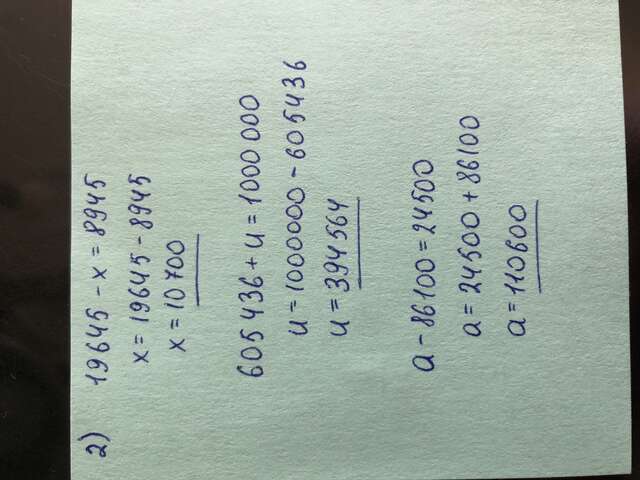 2) 19645 - x = 8945
x = 19645 - 8945
x = 10700
605436 + u = 1000000
u = 1000000 - 605436
u = 394564
a - 86100 = 24500
a = 24500 + 86100
a = 110600